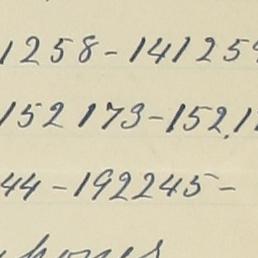 1258-141259
152173-152,1
44-192245-